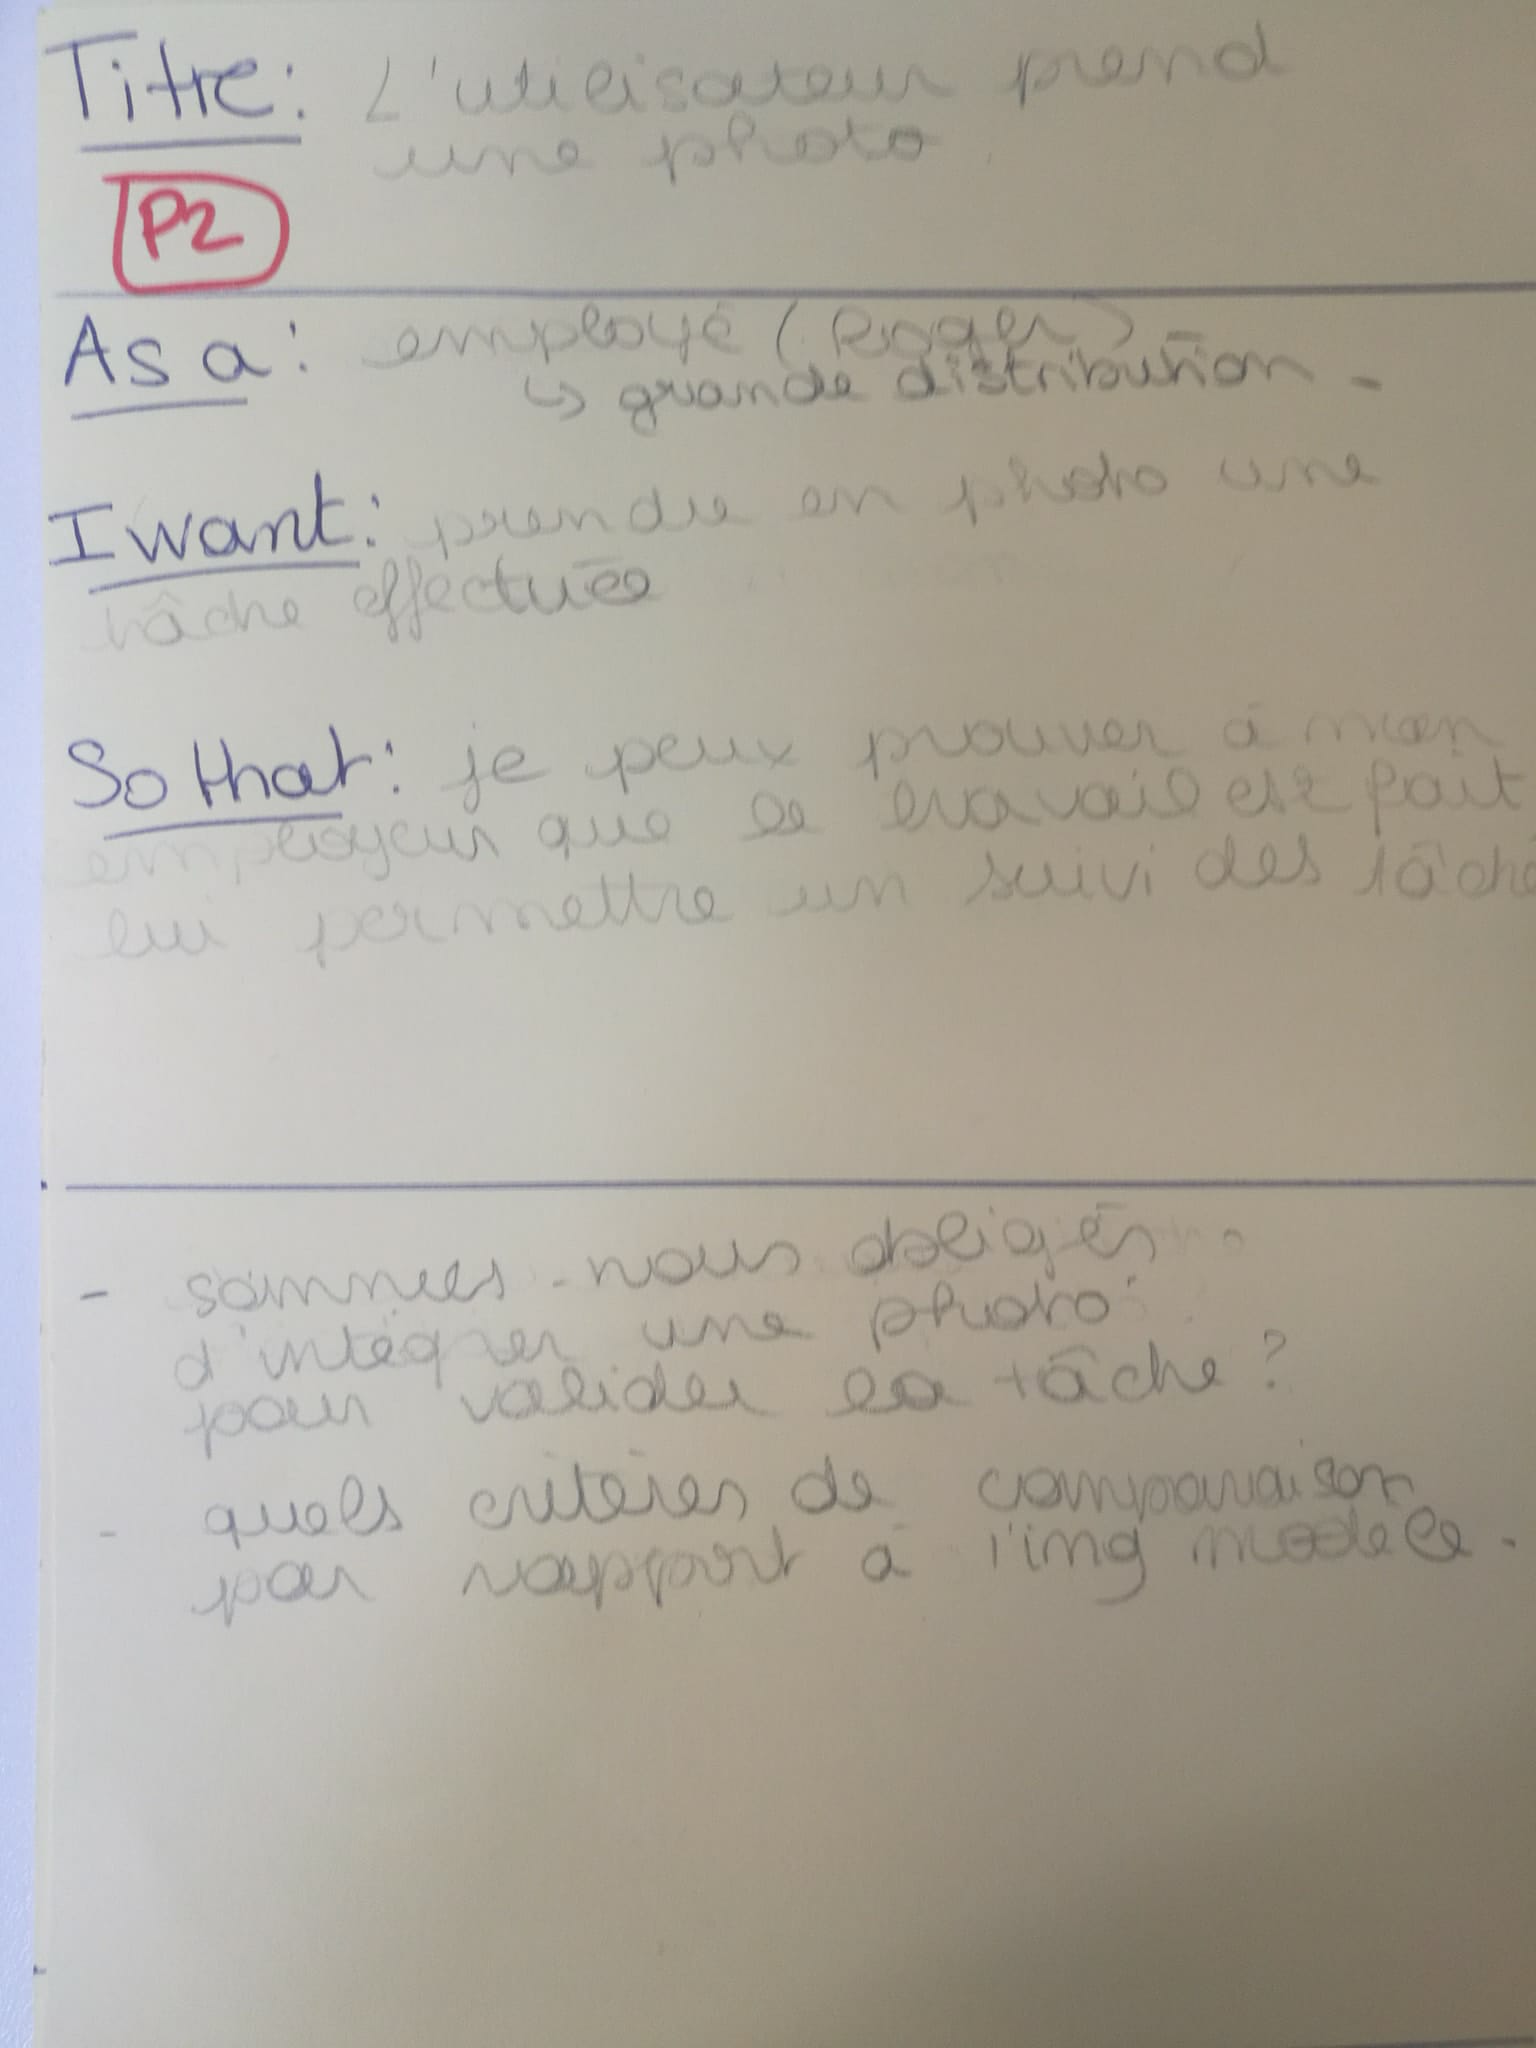 Titre: L'utilisateur prend
une photo.
P2
As a: employé (Roger)
↳ grande distribution -
I want: prendre en photo une
tâche effectuée
So that: je peux prouver à mon
employeur que le travail est fait
lui permettre un suivi des tâche
- sommes-nous obligés
d'intégrer une photo
pour valider la tâche ?
- quels critères de comparaison
par rapport à l'img modèle.